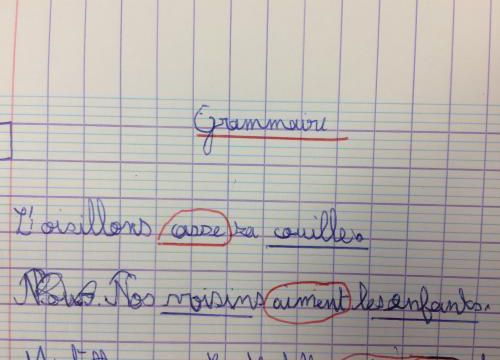 Grammaire
L'oisillons casse sa couille.
Nos voisins aiment les enfants.